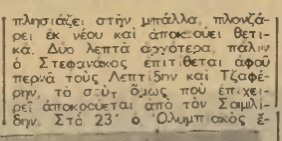 πλησιάζει στὴν μπάλλα, πλονζά-
ρει ἐκ νέου καὶ ἀποκρούει θετι-
κά. Δυο λεπτά ἀργότερα, πάλιν
ὁ Στεφανάκος ἐπιτίθεται ἀφοῦ
περνᾶ τοὺς Λεπτίδην καὶ Τζαφέ-
ρην, τὸ σοὺτ ὅμως ποὺ ἐπιχει-
ρεῖ ἀποκρούεται ἀπὸ τὸν Σαιμιλί-
δην. Στὸ 23´ ὁ Ὀλυμπιακὸς ἔ-